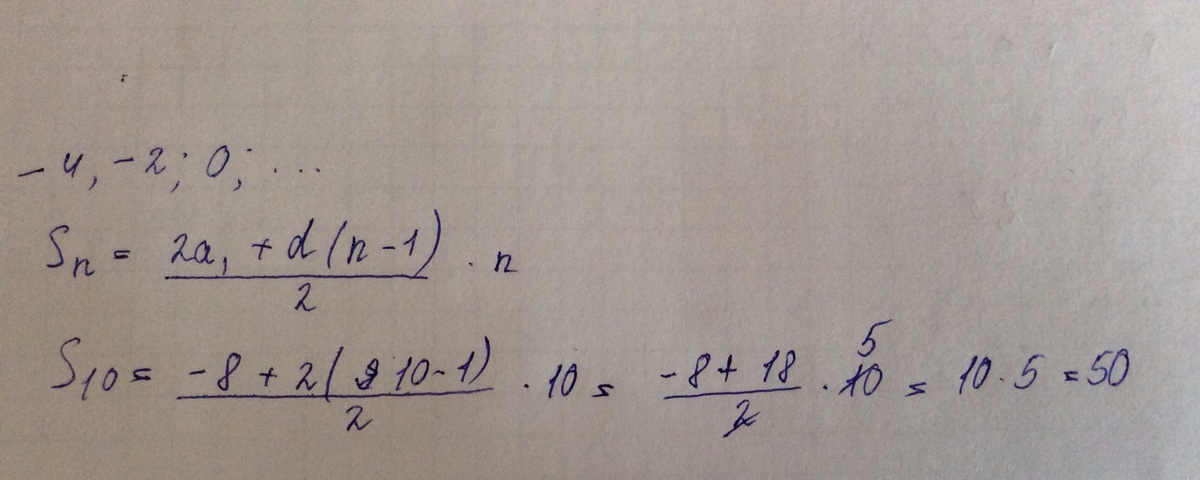 -4, -2; 0; ...
Sn = (2a₁ + d(n-1))/2 · n
S10 = (-8 + 2(10-1))/2 · 10 = (-8 + 18)/2 · 10 5 = 10 · 5 = 50